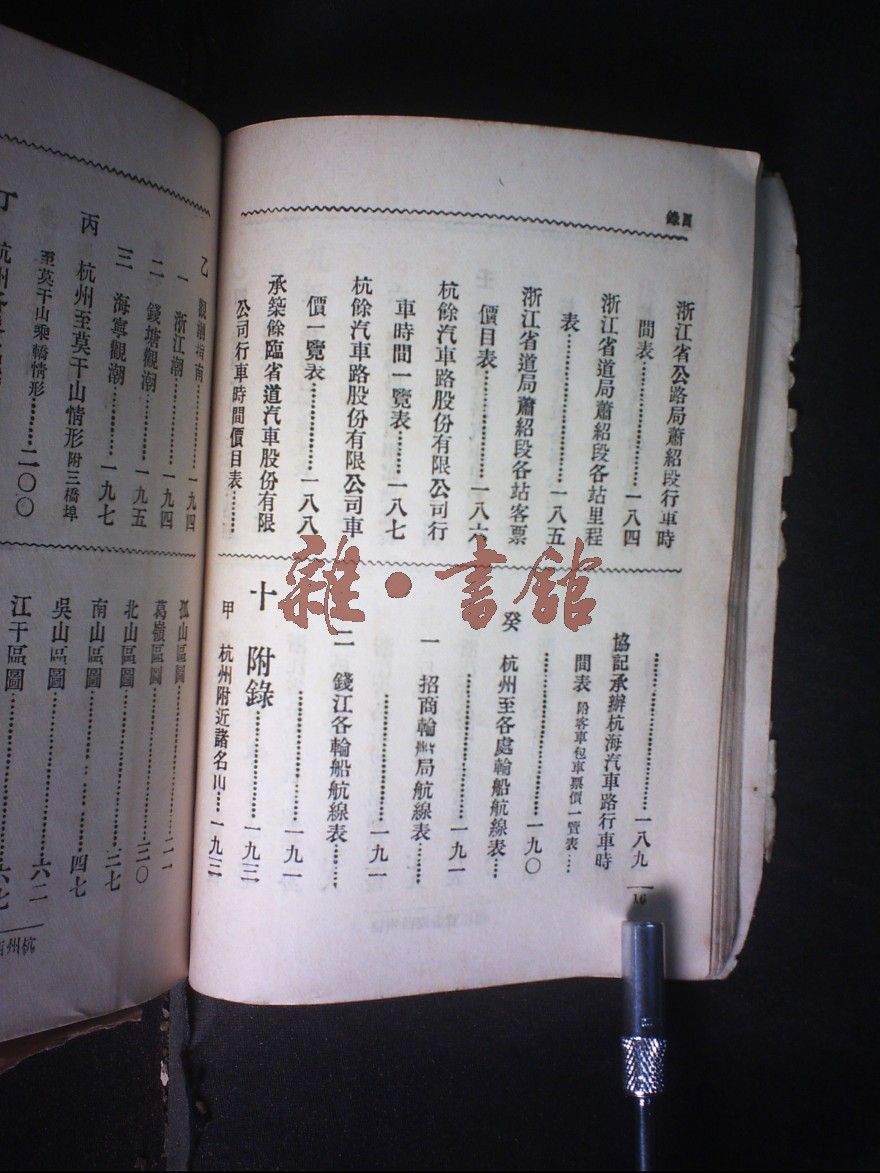 目錄
浙江省公路局蕭紹段行車時
間表……一八四
浙江省道局蕭紹段各站里程
表……一八五
浙江省道局蕭紹段各站客票
價目表……一八六
杭餘汽車路股份有限公司行
車時間一覽表……一八七
杭餘汽車路股份有限公司車
價一覽表……一八八
承築餘臨省道汽車股份有限
公司行車時間價目表……
……一八九
協記承辦杭海汽車路行車時
間表 附客車包車票價一覽表……
……一九〇
癸 杭州至各處輪船航線表……
……一九一
一 招商輪船局航線表……
……一九一
二 錢江各輪船航線表……
……一九一
十 附錄……一九三
甲 杭州附近諸名山……一九三
16
乙 觀潮指南……一九四
一 浙江潮……一九四
二 錢塘觀潮……一九五
三 海寧觀潮……一九七
丙 杭州至莫干山情形 附三橋埠
至莫干山乘轎情形……二〇〇
丁 杭州
孤山區圖……二一
葛嶺區圖
北山區圖……三七
南山區圖……四七
吳山區圖……六二
江干區圖……六七
杭州
雜·書館